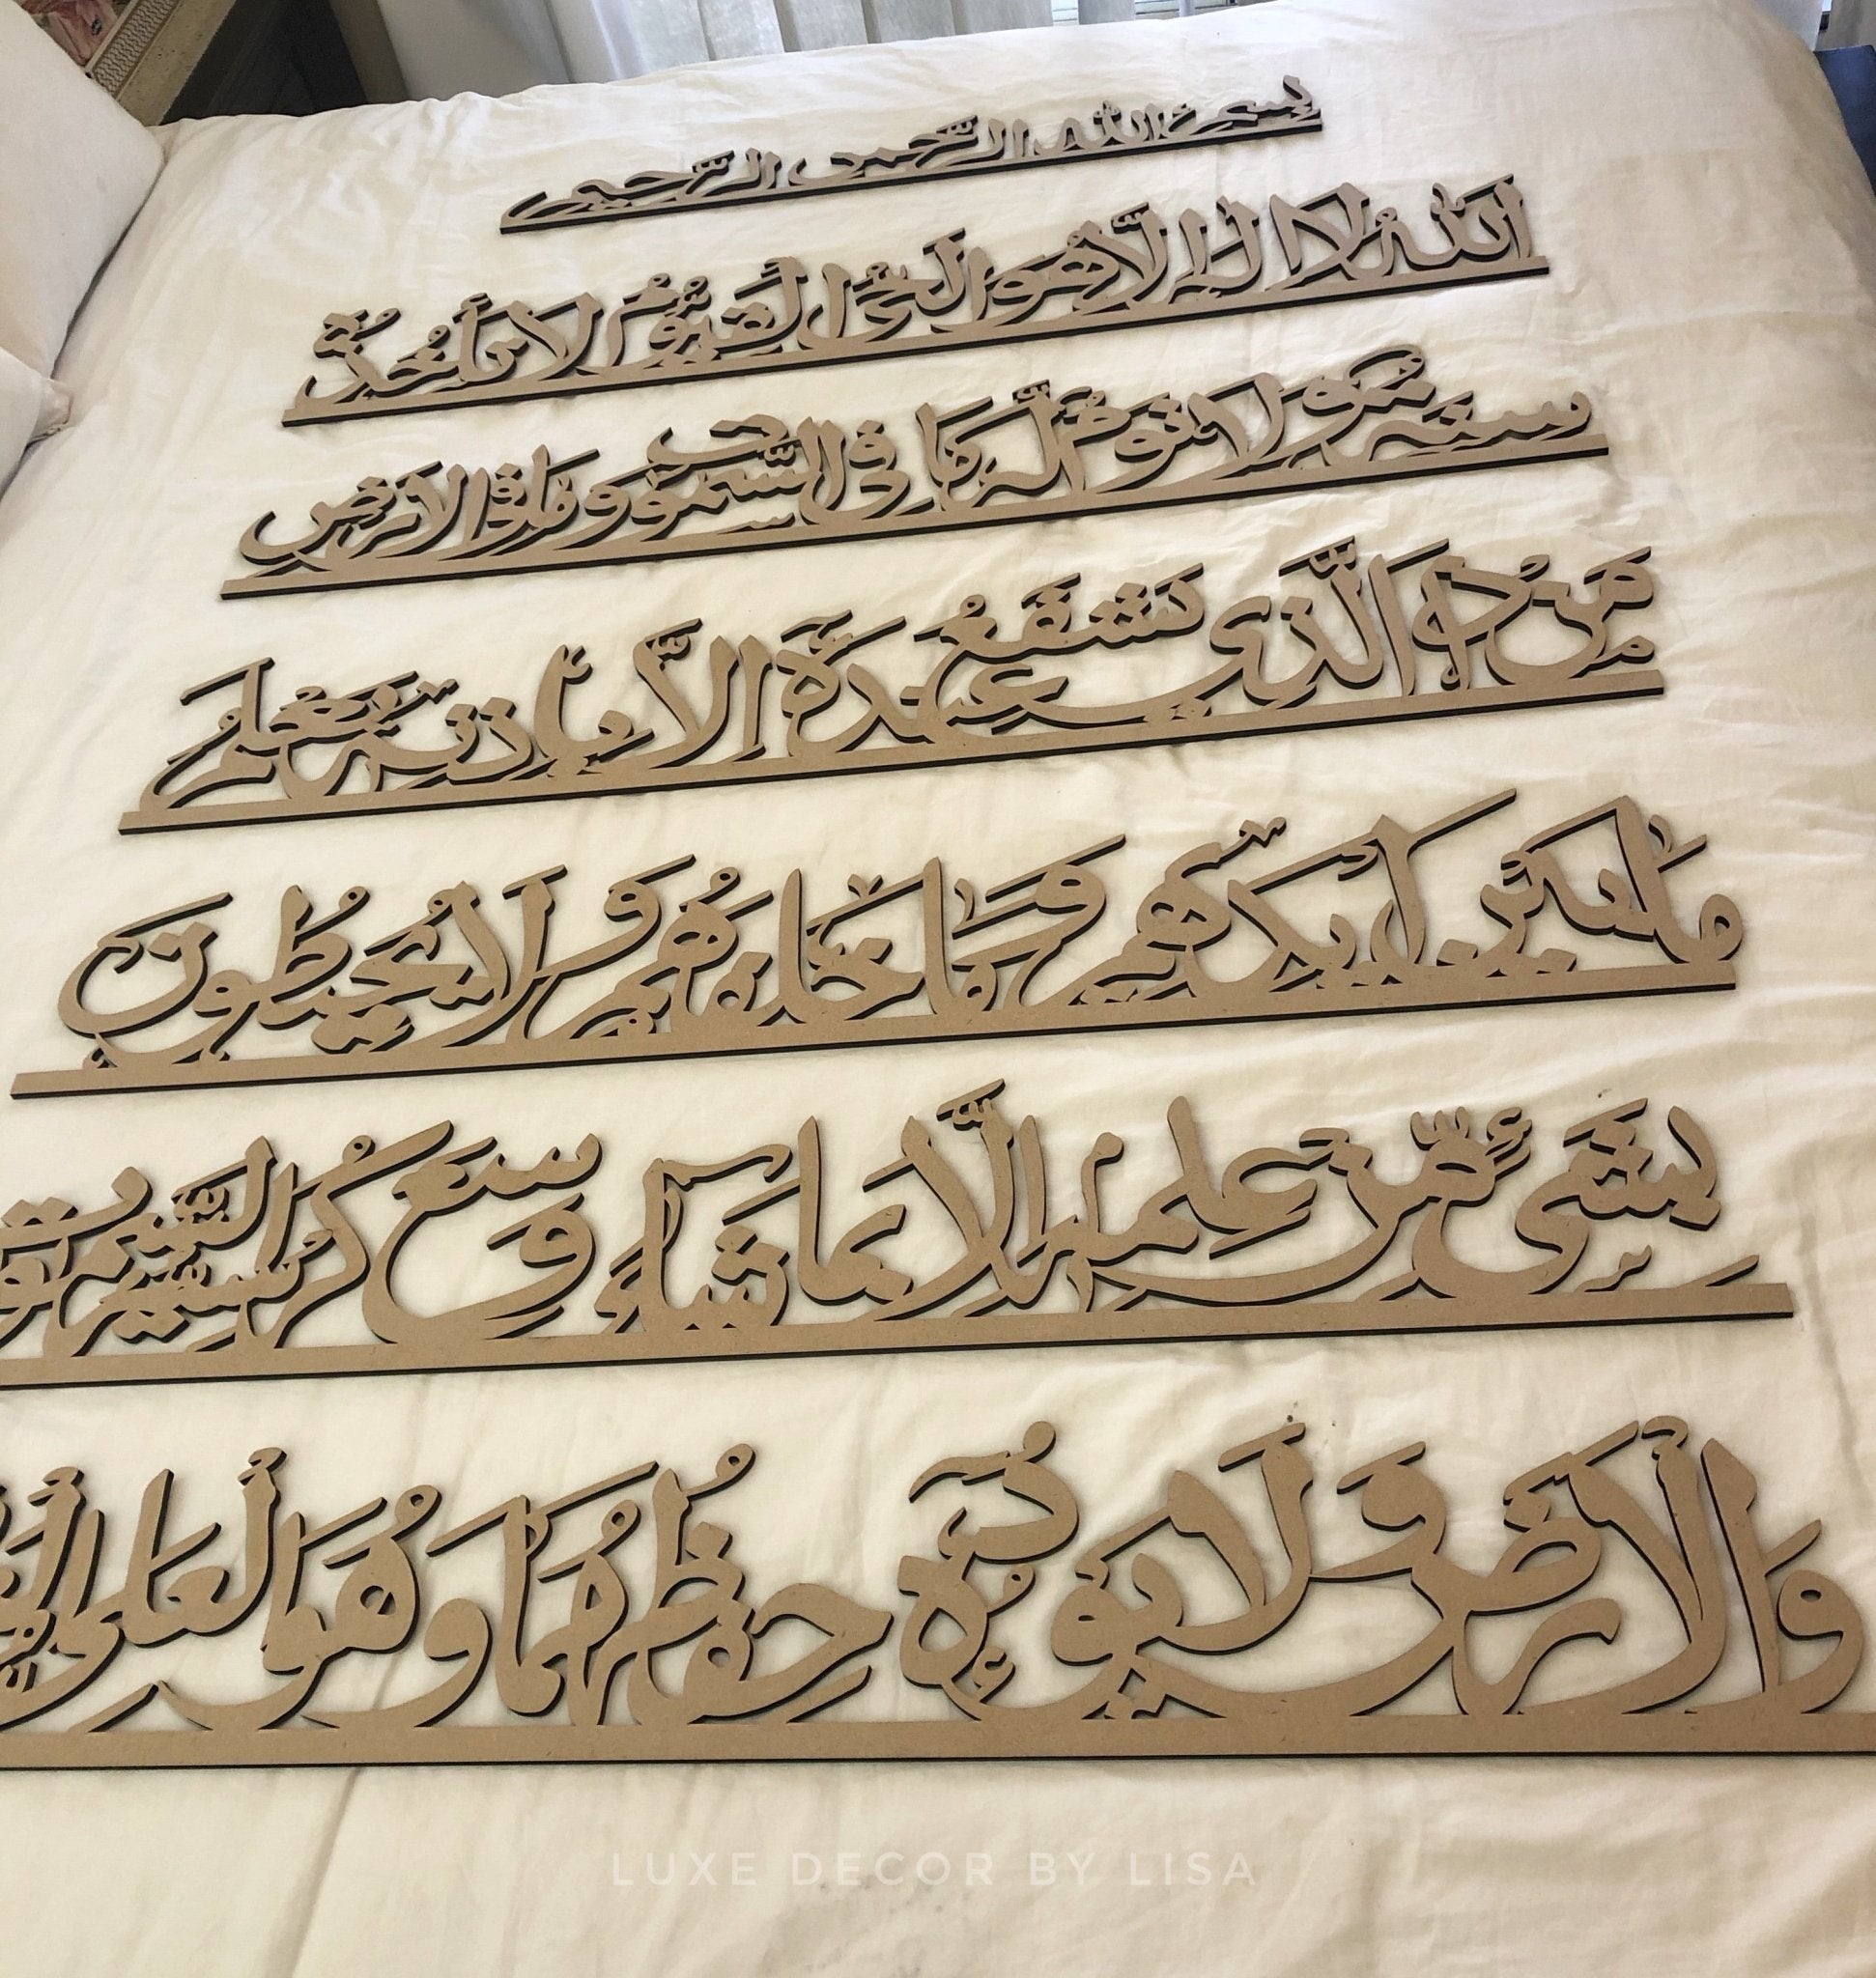 بِسْمِ اللهِ الرَّحْمٰنِ الرَّحِيْمِ
اَللهُ لَا اِلٰهَ اِلَّا هُوَ اَلْحَيُّ الْقَيُّوْمُ لَا تَأْخُذُهٗ
سِنَةٌ وَّلَا نَوْمٌ لَهٗ مَا فِی السَّمٰوٰتِ وَمَا فِی الْاَرْضِ
مَنْ ذَا الَّذِیْ یَشْفَعُ عِنْدَهٗۤ اِلَّا بِاِذْنِهٖ یَعْلَمُ
مَا بَیْنَ اَیْدِیْهِمْ وَمَا خَلْفَهُمْ وَلَا یُحِیْطُوْنَ
بِشَیْءٍ مِّنْ عِلْمِهٖۤ اِلَّا بِمَا شَآءَ وَسِعَ كُرْسِیُّهُ السَّمٰوٰتِ
وَالْاَرْضَ وَلَا یَـُٔوْدُهٗ حِفْظُهُمَا وَهُوَ الْعَلِیُّ
LUXE DECOR BY LISA